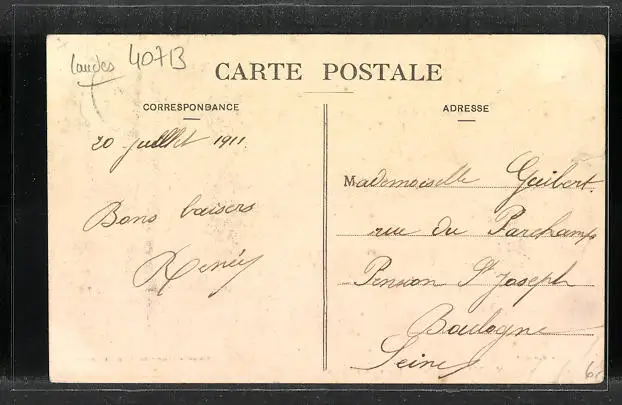 Landes 40713
CARTE POSTALE
CORRESPONDANCE
ADRESSE
20 juillet 1911
Bons baisers
Renée
Mademoiselle Guibert
rue du Parchamp
Pension St Joseph
Boulogne
Seine